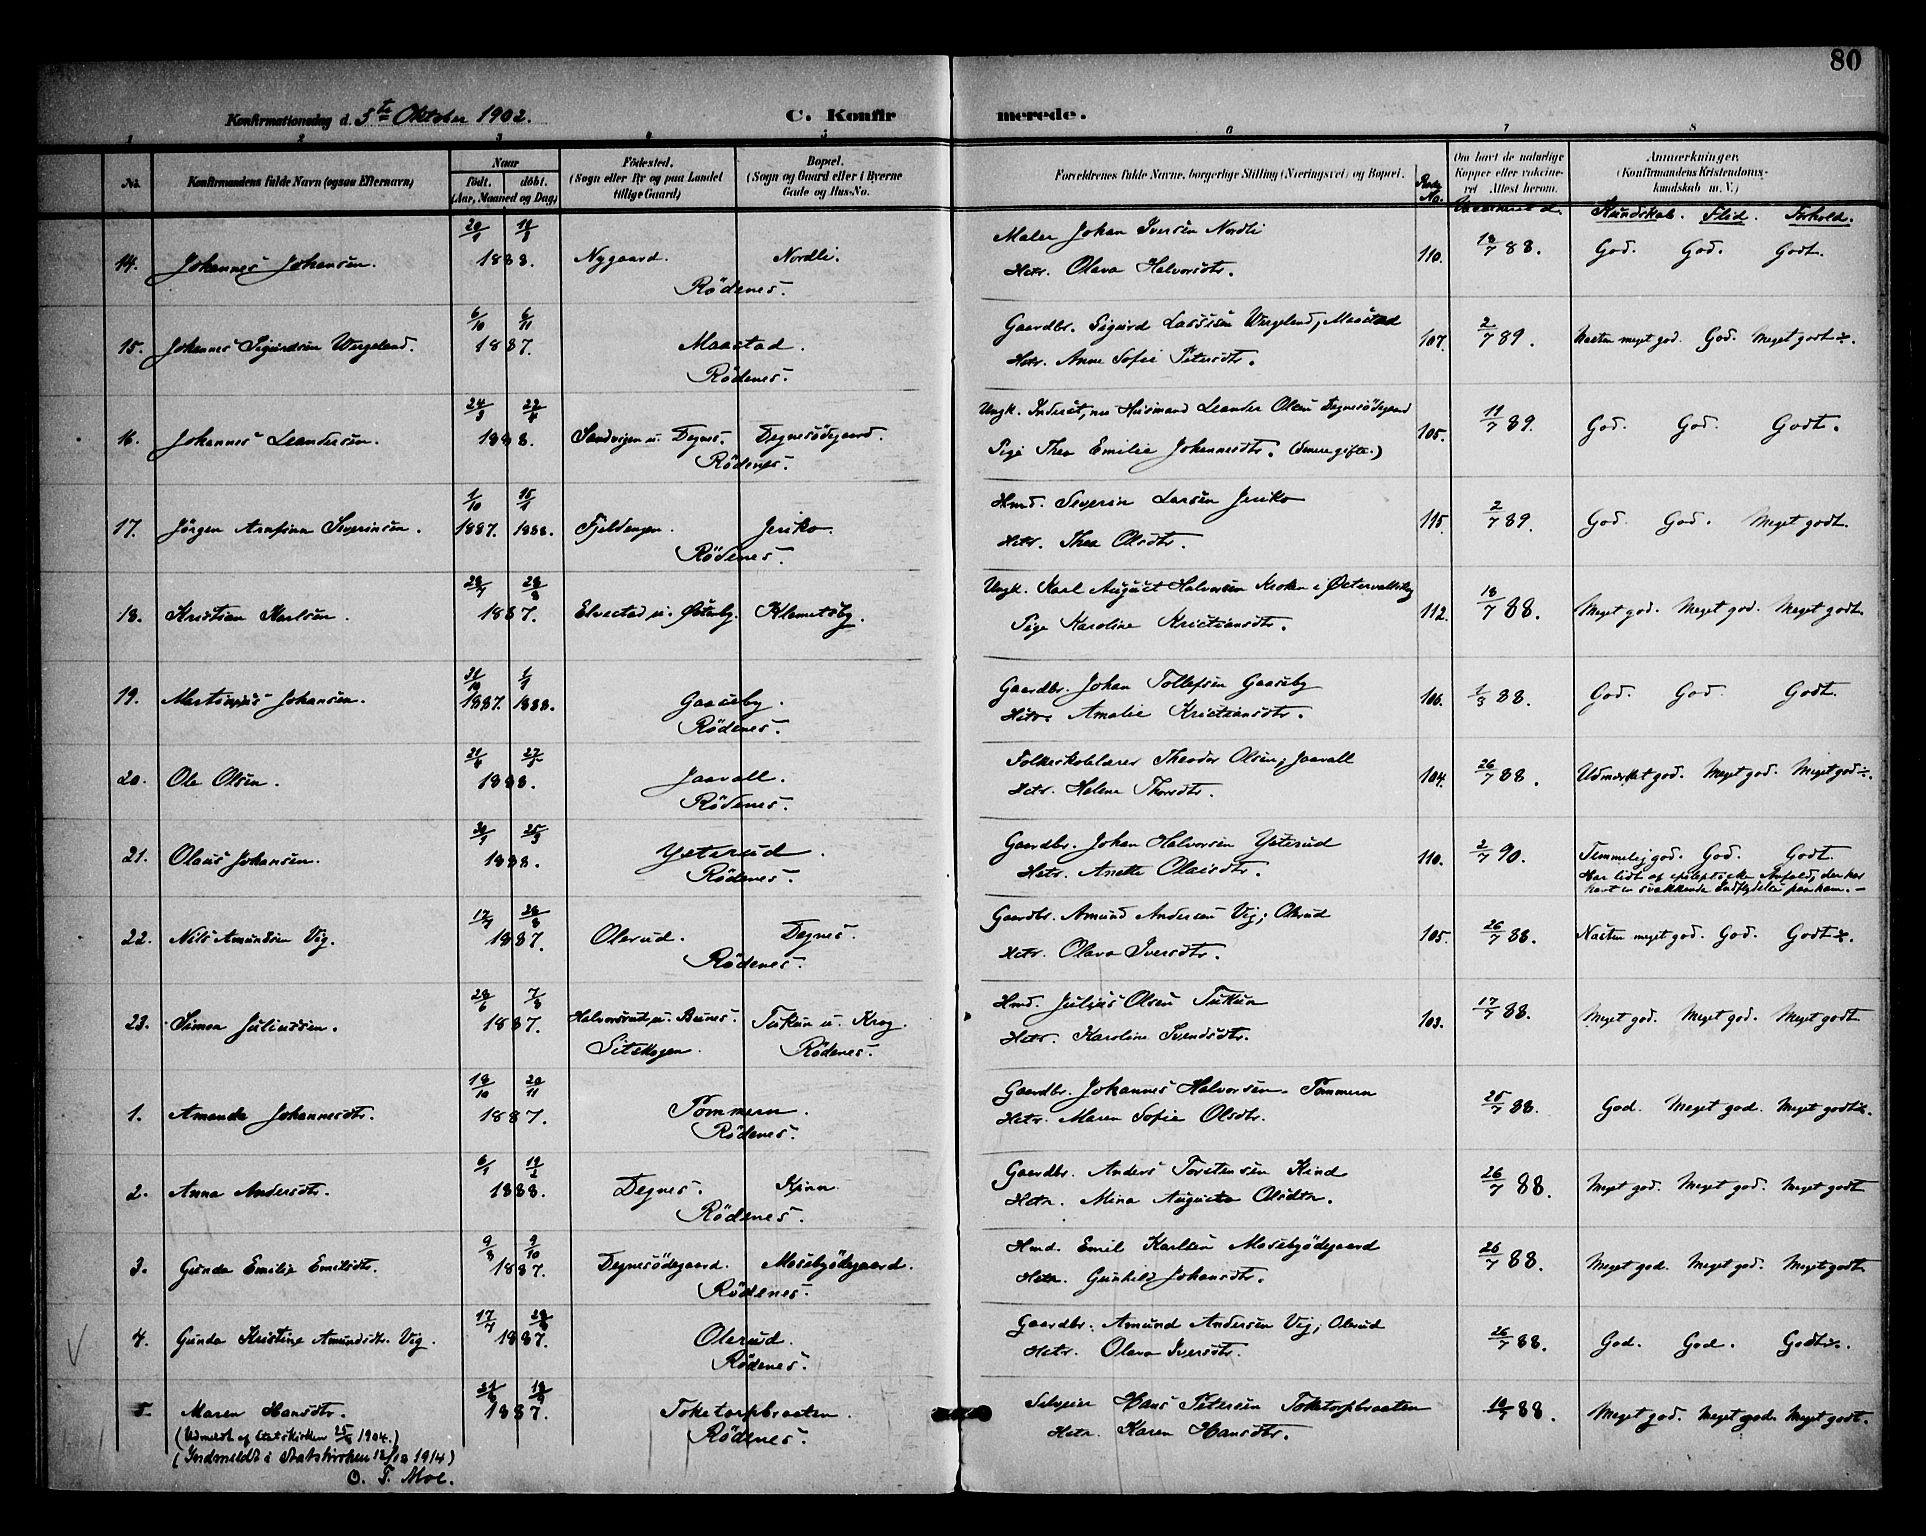 80
Konfirmationsdag d. 5te Oktober 1902. C. Konfirmerede.
1 2 3 4 5 6 7 8
No. Konfirmandens fulde Navn (ogsaa Efternavn)
Naar født. døbt. (Aar, Maaned og Dag)
Fødested. (Sogn eller By og paa Landet tillige Gaard)
Bopæl. (Sogn og Gaard eller i Byerne Gade og Hus-No.
Forældrenes fulde Navne, borgerlige Stilling (Næringsvei) og Bopæl.
Om havt de naturlige Kopper eller vakcineret Attest herom.
Anmærkninger. (Konfirmandens Kristendomskundskab m. V.)
Kundskab. Flid. Forhold.
14. Johannes Johansen. 1888. Nygaard. Nordli. Rödenes.
Maler Johan Iversen Nordli
Hstr. Olava Halvorsdtr. 110. 18/7 88. God. God. Godt.
15. Johannes Sigurdsen Wergeland. 6/10 6/11 1887. Maastad. Rödenes.
Gaardbr. Sigurd Larssen Wergeland, Maastad
Hstr. Anne Sofie Petersdtr. 107. 2/7 89. Næsten meget god. God. Meget godt
16. Johannes Leandersen. 24/3 22/4 1888. Sandvigen u. Degnes. Degnesödegaard. Rödenes.
Ungk. Inderst, nu Husmand Leander Olsen Degnesödegaard
Pige Thea Emilie Johannesdtr. (Senere gifte.) 105. 11/7 89. God. God. Godt.
17. Jörgen Severinsen. 1/10 15/1 1887. 1888. Fjeldengen. Jeriko. Rödenes.
Hmd. Severin Larsen Jeriko
Hstr. Thea Olsdtr. 115. 2/7 89. God. God. Meget godt.
18. Kristian Karlsen. 1887. Elvestad u. Østenby. Klemetsby.
Ungk. Karl August Halvorsen Kroken i
Pige Karoline Kristiansdtr. 112. 18/7 88. Meget god. Meget god. Meget godt
19. Martinius Johansen. 31/10 1/1 1887. 1888. Gaaseby. Rödenes.
Gaardbr. Johan Tollefsen Gaaseby
Hstr. Amalie Kristiansdtr. 106. 88. God. God. Godt.
20. Ole Olsen. 1888. Jaavall. Rödenes.
Folkeskolelærer Theodor Olsen, Jaavall
Hstr. Helene Thorsdtr. 104. 26/7 88. Udmærket god. Meget god. Meget god
21. Olaus Johansen. 30/1 25/3 1888. Ysterud. Rödenes.
Gaardbr. Johan Halvorsen Ysterud
Hstr. Anette Olausdtr. 110. 2/7 90. Temmelig god. God. Godt.
Har lidt af epileptiske Anfald, der har
havt en svækkende Indflydelse paa ham. –
22. Nils Amundsen Vig. 1887. Olerud. Degnes. Rödenes.
Gaardbr. Amund Andersen Vig, Olerud
Hstr. Olava Iversdtr. 105. 26/7 88. Næsten meget god. God. Godt
23. Simon Juliussen. 28/6 7/8 1887. Halvorsrud u. Bunes. Tukun u. Krog. Sitskogen. Rödenes.
Hmd. Julius Olsen Tukun
Hstr. Karoline Svendsdtr. 103. 17/7 88. Meget god. Meget god. Meget godt
1. Amanda Johannesdtr. 18/10 20/11 1887. Pommern. Rödenes.
Gaardbr. Johannes Halvorsen Pommern
Hstr. Maren Sofie Olsdtr. 25/7 88. God. Meget god. Meget godt
2. Anna Andersdtr. 6/1 19/2 1888. Degnes. Kjinn Rödenes.
Gaardbr. Anders Torstensen Kind
Hstr. Mina Augusta Olsdtr. 26/7 88. Meget god. Meget god. Meget godt
3. Gunda Emilie Emilsdtr. 9/8 9/10 1887. Degnesödegaard. Mosebyödegaard. Rödenes.
Hmd. Emil Karlsen Mosebyödegaard
Hstr. Gunhild Johansdtr. 26/7 88. Meget god. Meget god. Meget godt
4. Gunda Kristine Amundsdtr. Vig. 1887. Olerud. Rödenes.
Gaardbr. Amund Andersen Vig, Olerud
Hstr. Olava Iversdtr. 26/7 88. God. God. Godt
5. Maren Hansdtr. 1887. Toketorpbraaten. Rödenes.
Selveier Hans Petersen Toketorpbraaten
Hstr. Karen Hansdtr. 88. Meget god. Meget god. Meget godt.
(Udmeldt af Statskirken 1904.)
(Indmeldt i Statskirken 12/12 1914)
O. T. Moe.